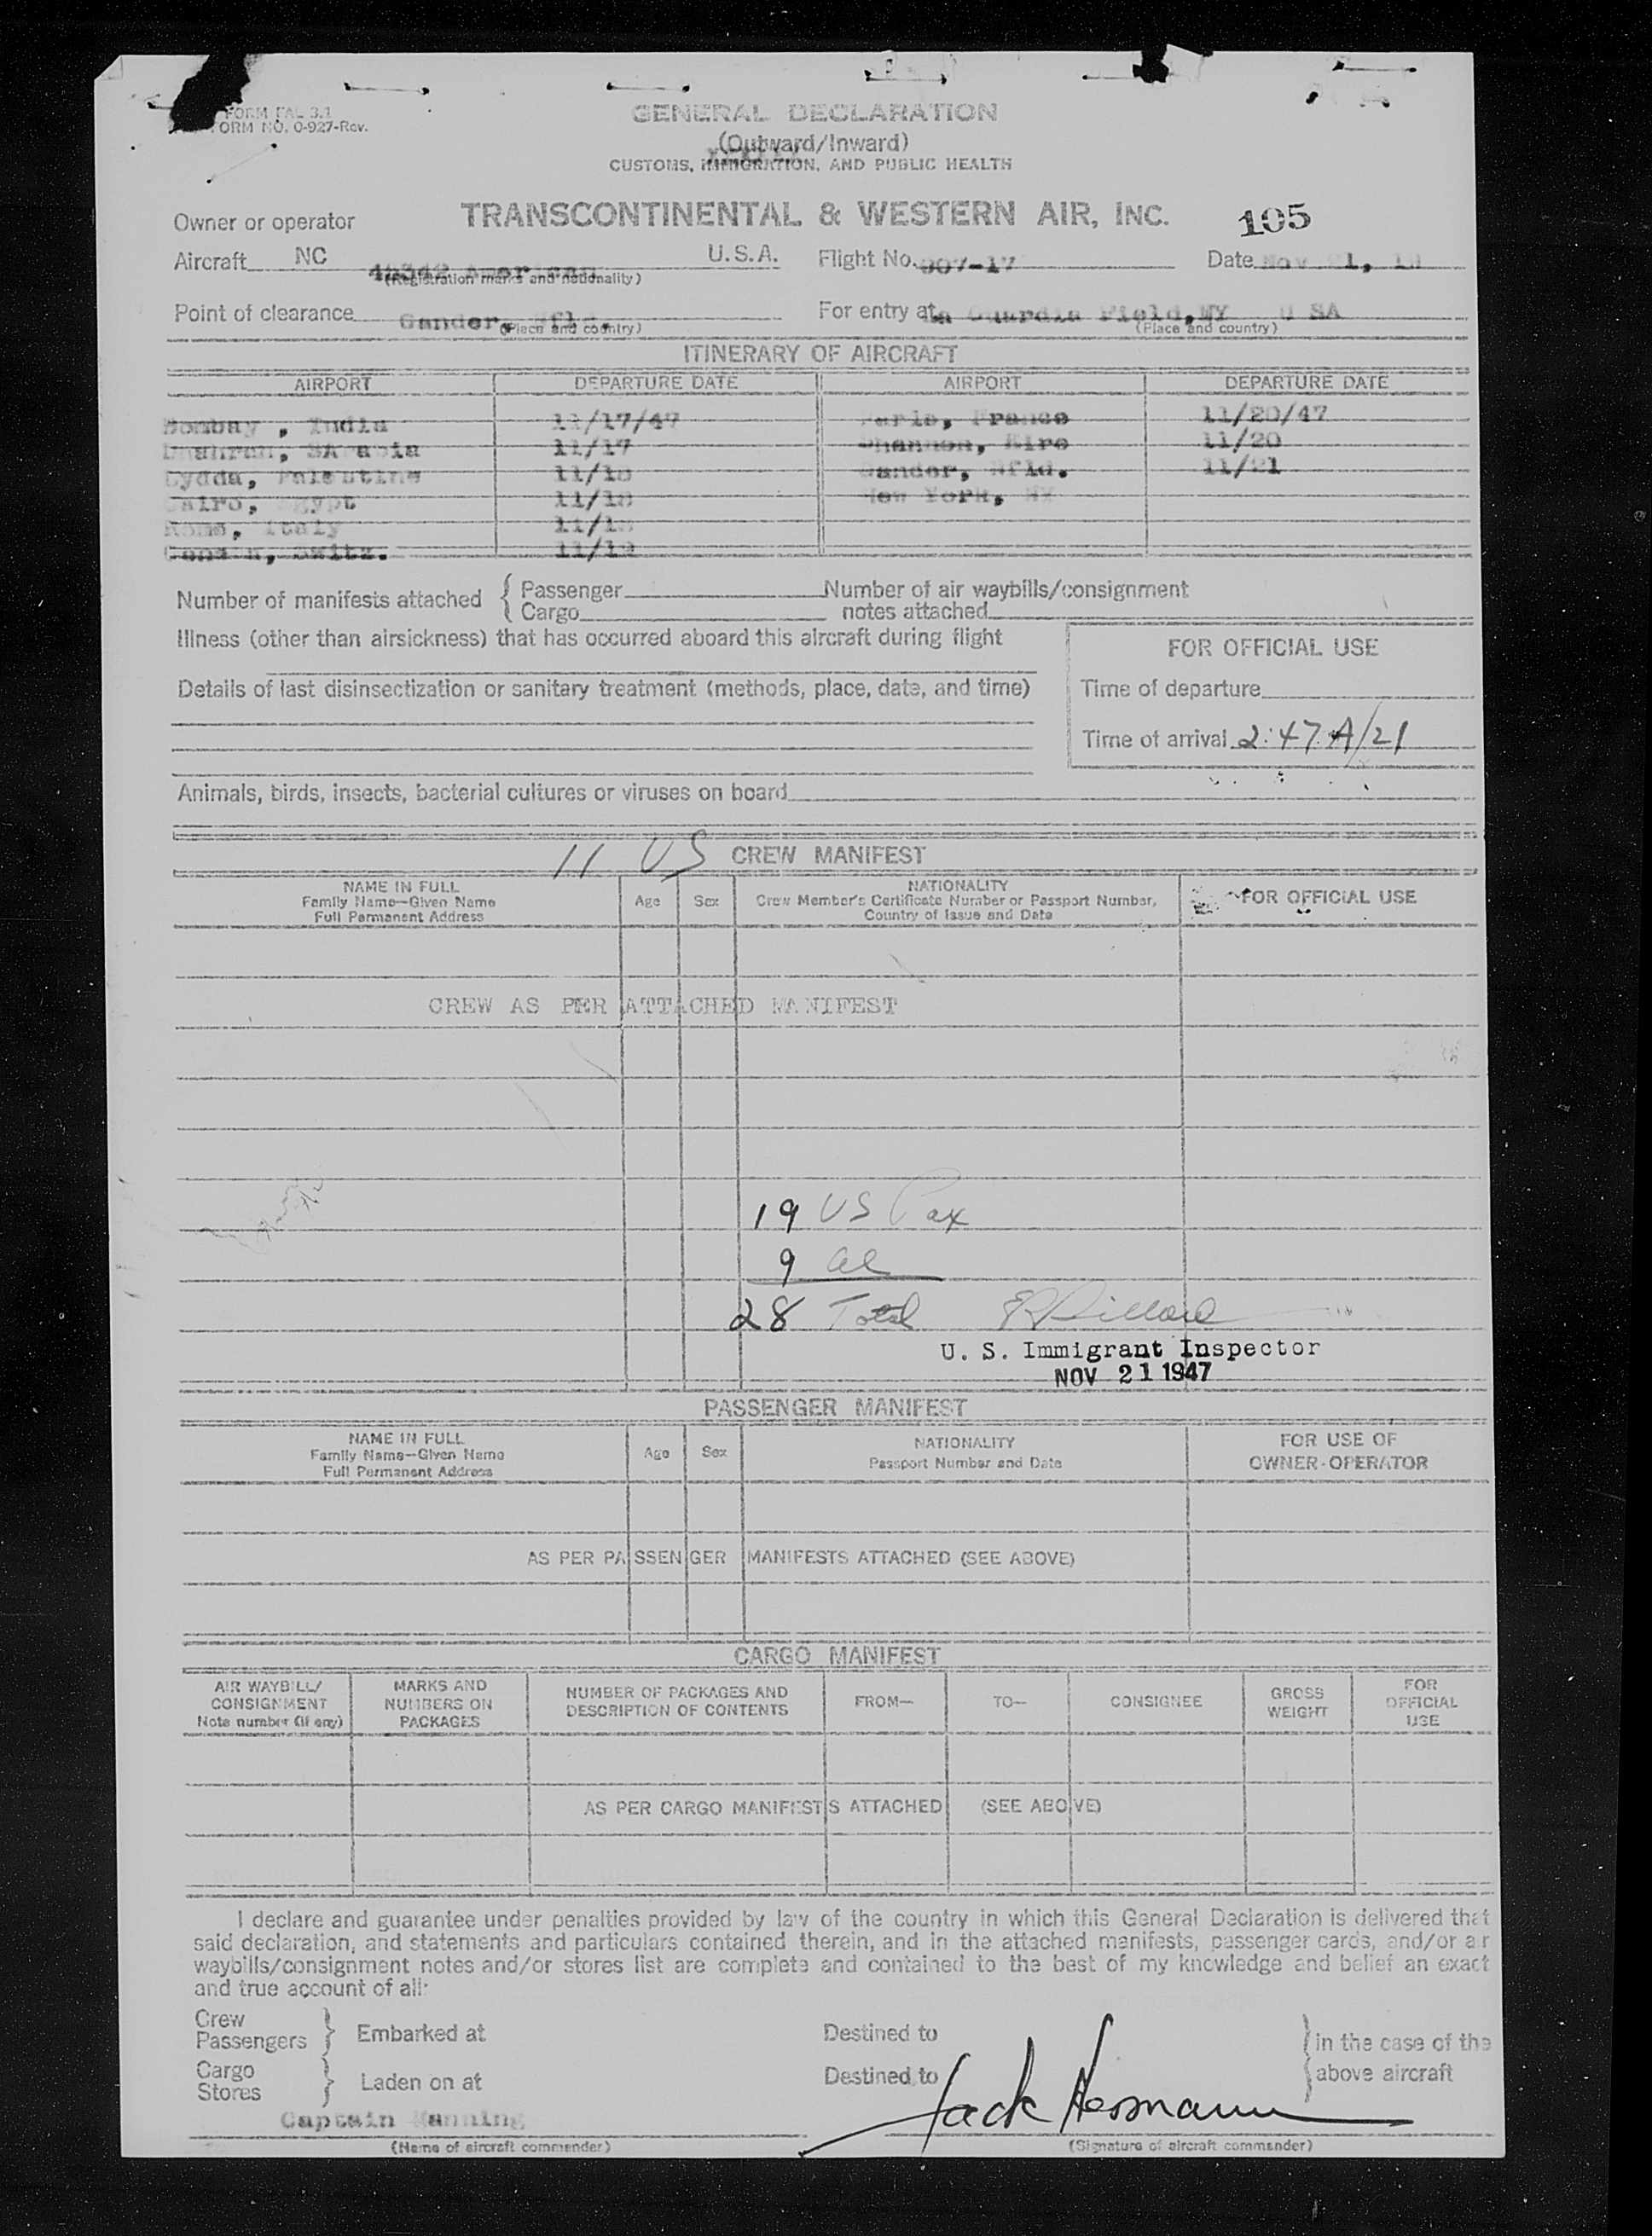 FORM FAL 3.1
FORM NO. O-927-Rev.
GENERAL DECLARATION
(Outward/Inward)
CUSTOMS, IMMIGRATION, AND PUBLIC HEALTH
Owner or operator TRANSCONTINENTAL & WESTERN AIR, INC. 105
Aircraft NC American U.S.A. Flight No. 907-17 Date Nov 21,
(Registration marks and nationality)
Point of clearance Gander, Nfld. For entry at La Guardia Field, NY U SA
(Place and country) (Place and country)
ITINERARY OF AIRCRAFT
AIRPORT DEPARTURE DATE AIRPORT DEPARTURE DATE
Bombay , India 11/17/47 Paris, France 11/20/47
Dhahran, SA rabia 11/17 Shannon, Eire 11/20
Lydda, Palestine 11/18 Gander, Nfld. 11/21
Cairo, Egypt 11/18 New York, NY
Rome, Italy
Geneva, Switz.
Number of manifests attached { Passenger Number of air waybills/consignment
Cargo notes attached
Illness (other than airsickness) that has occurred aboard this aircraft during flight
FOR OFFICIAL USE
Details of last disinsectization or sanitary treatment (methods, place, date, and time)
Time of departure
Time of arrival 2:47 A/21
Animals, birds, insects, bacterial cultures or viruses on board
11 US CREW MANIFEST
NAME IN FULL
Family Name—Given Name
Full Permanent Address
Age Sex
NATIONALITY
Crew Member's Certificate Number or Passport Number,
Country of Issue and Date
FOR OFFICIAL USE
CREW AS PER ATTACHED MANIFEST
19 US Pax
9 al
28 Total
U. S. Immigrant Inspector
NOV 21 1947
PASSENGER MANIFEST
NAME IN FULL
Family Name—Given Name
Full Permanent Address
Age Sex
NATIONALITY
Passport Number and Date
FOR USE OF
OWNER-OPERATOR
AS PER PASSENGER MANIFESTS ATTACHED (SEE ABOVE)
CARGO MANIFEST
AIR WAYBILL/
CONSIGNMENT
Note number (if any)
MARKS AND
NUMBERS ON
PACKAGES
NUMBER OF PACKAGES AND
DESCRIPTION OF CONTENTS
FROM—
TO—
CONSIGNEE
GROSS
WEIGHT
FOR
OFFICIAL
USE
AS PER CARGO MANIFESTS ATTACHED (SEE ABOVE)
I declare and guarantee under penalties provided by law of the country in which this General Declaration is delivered that
said declaration, and statements and particulars contained therein, and in the attached manifests, passenger cards, and/or air
waybills/consignment notes and/or stores list are complete and contained to the best of my knowledge and belief an exact
and true account of all:
Crew
Passengers } Embarked at Destined to } in the case of the
Cargo
Stores } Laden on at Destined to { above aircraft
Captain Manning Jack Hermann
(Name of aircraft commander) (Signature of aircraft commander)